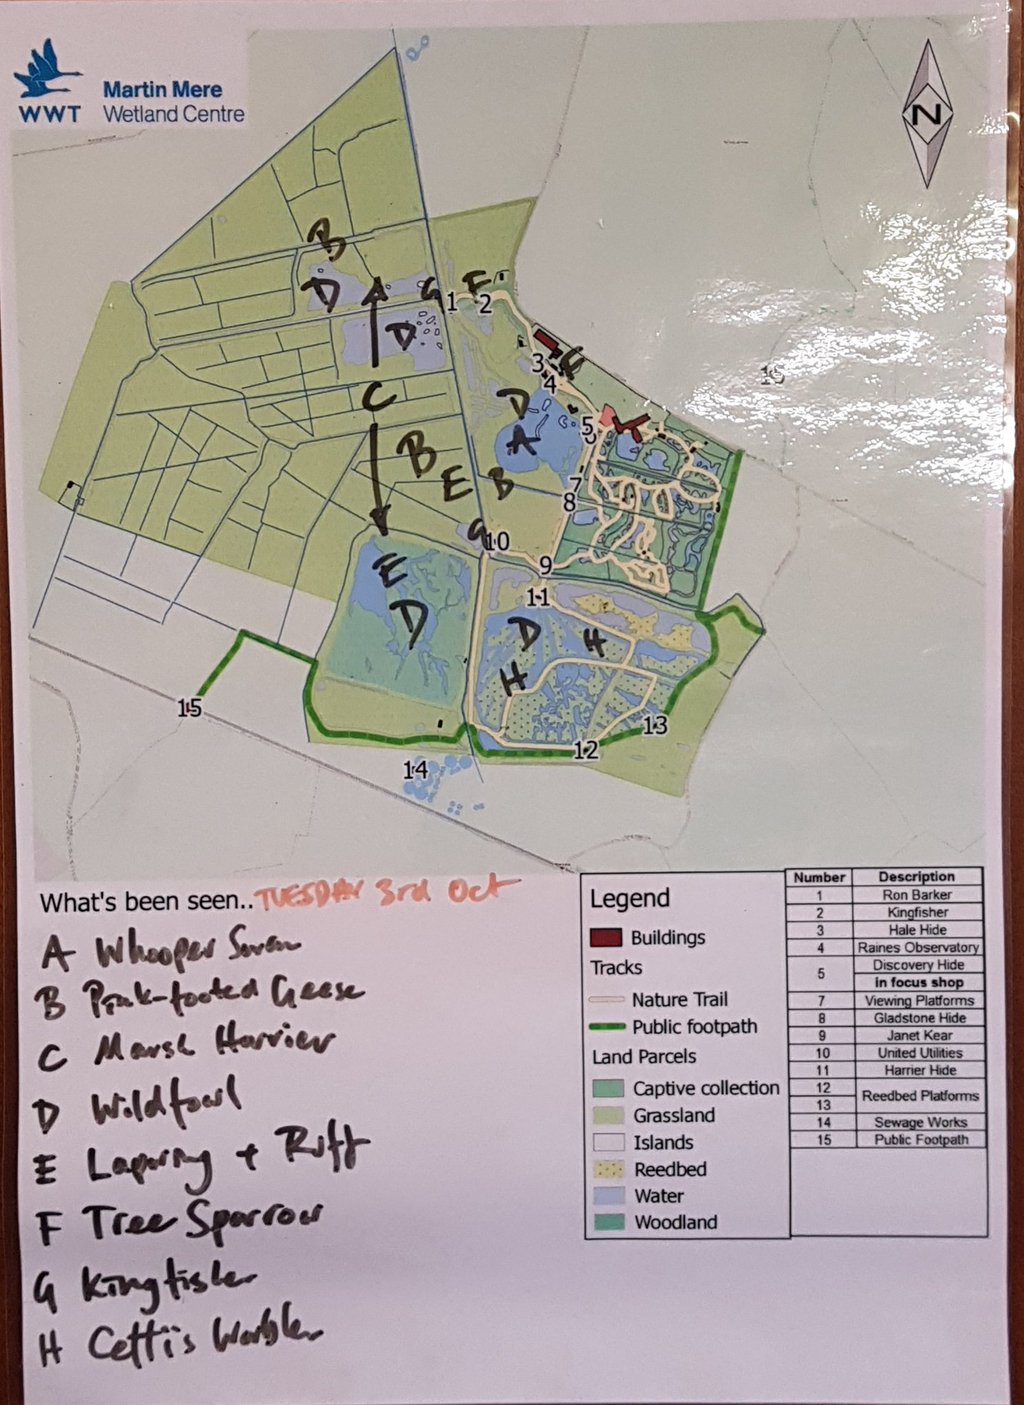 WWT
Martin Mere
Wetland Centre
N
B
D
A
G
1
F
2
D
3
F
4
15
C
D
A
5
6
B
E
B
7
8
G
10
9
E
11
D
D
H
H
15
13
12
14
What's been seen.. TUESDAY 3rd Oct
A Whooper Swan
B Pink-footed Geese
C Marsh Harrier
D Wildfowl
E Lapwing + Ruff
F Tree Sparrow
G Kingfisher
H Cetti's Warbler
Legend
Buildings
Tracks
Nature Trail
Public footpath
Land Parcels
Captive collection
Grassland
Islands
Reedbed
Water
Woodland
Number Description
1 Ron Barker
2 Kingfisher
3 Hale Hide
4 Raines Observatory
5 Discovery Hide
In focus shop
7 Viewing Platforms
8 Gladstone Hide
9 Janet Kear
10 United Utilities
11 Harrier Hide
12 Reedbed Platforms
13
14 Sewage Works
15 Public Footpath